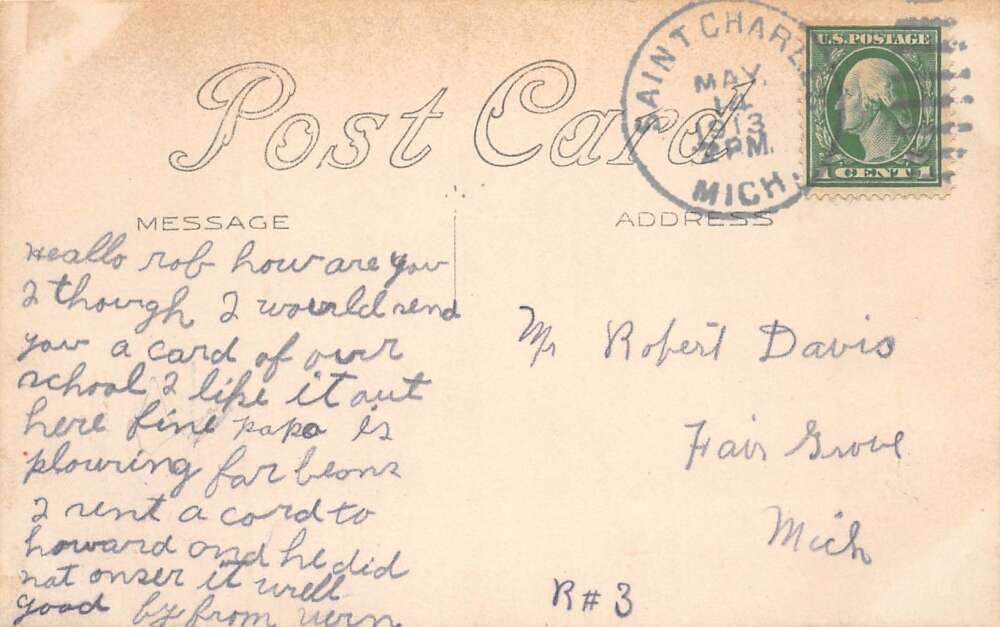 Post Card
SAINT CHARLES
MAY.
14
1913
2 PM.
MICH.
U.S. POSTAGE
1 CENT 1
MESSAGE
ADDRESS
Heallo rob how are you
I though I would send
you a card of our
school I like it out
here fine papa is
plowing for beans
I sent a card to
howard and he did
not onser it well
good by from vern
Mr Robert Davis
Fair Grove
Mich
R#3